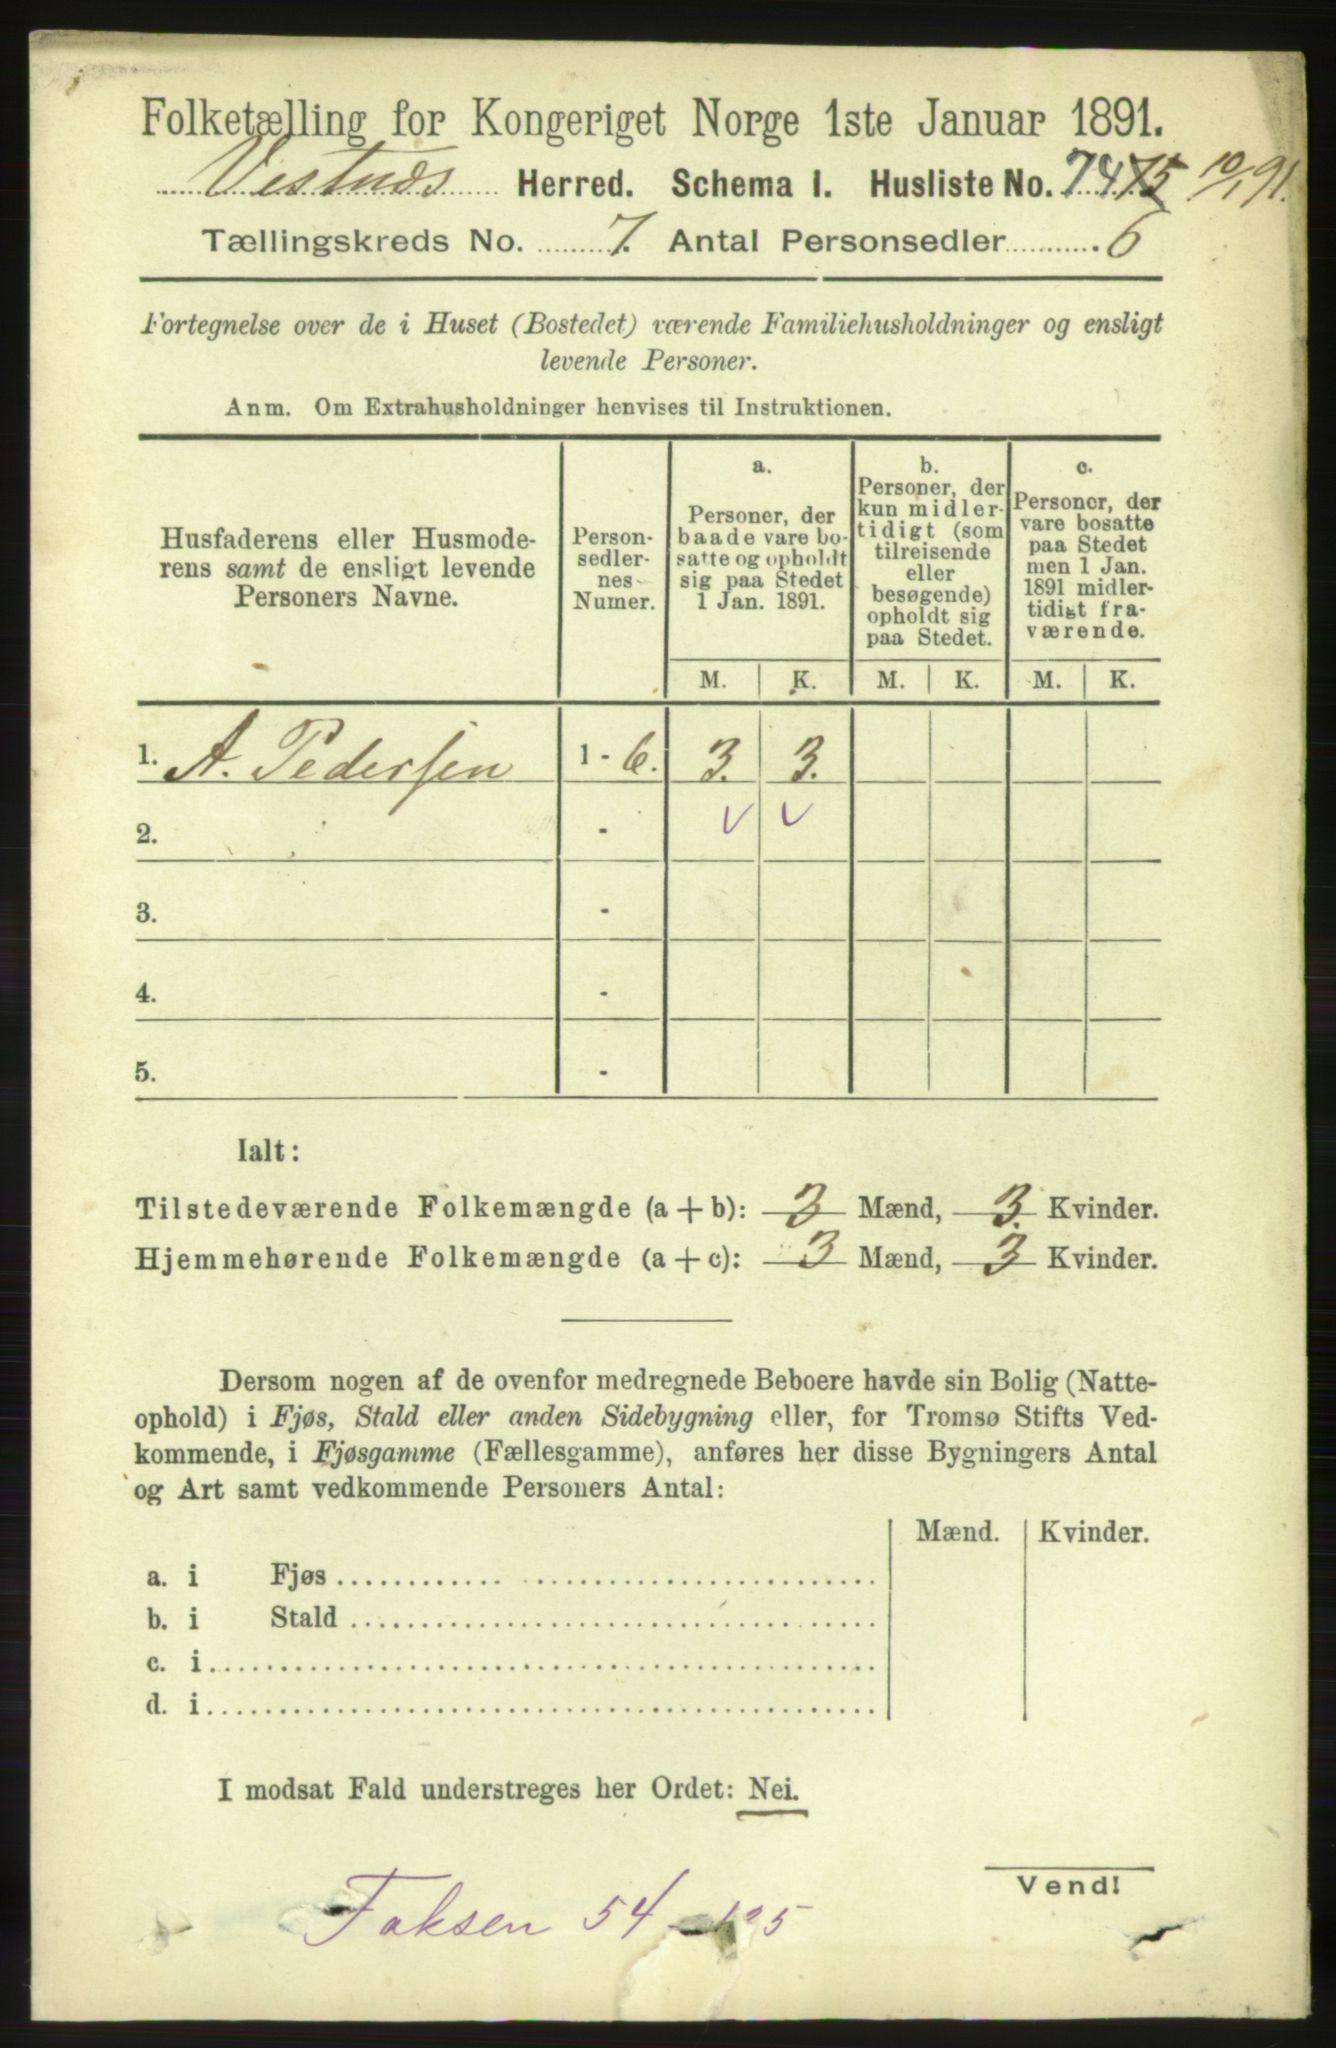 Folketælling for Kongeriget Norge 1ste Januar 1891.
Vestnæs Herred. Schema I. Husliste No. 74 75 10/1 91.
Tællingskreds No. 7. Antal Personsedler 6
Fortegnelse over de i Huset (Bostedet) værende Familiehusholdninger og ensligt
levende Personer.
Anm. Om Extrahusholdninger henvises til Instruktionen.
Husfaderens eller Husmode-
rens samt de ensligt levende
Personers Navne.
Person-
sedler-
nes
Numer.
a.
Personer, der
baade vare bo-
satte og opholdt
sig paa Stedet
1 Jan. 1891.
b.
Personer, der
kun midler-
tidigt (som
tilreisende
eller
besøgende)
opholdt sig
paa Stedet.
c.
Personer, der
vare bosatte
paa Stedet
men 1 Jan.
1891 midler-
tidigt fra-
værende.
M. K. M. K. M. K.
1. A. Pedersen 1 - 6. 3. 3.
2. - v v
3. -
4. -
5. -
Ialt:
Tilstedeværende Folkemængde (a + b): 3 Mænd, 3. Kvinder.
Hjemmehørende Folkemængde (a + c): 3 Mænd, 3 Kvinder.
Dersom nogen af de ovenfor medregnede Beboere havde sin Bolig (Natte-
ophold) i Fjøs, Stald eller anden Sidebygning eller, for Tromsø Stifts Ved-
kommende, i Fjøsgamme (Fællesgamme), anføres her disse Bygningers Antal
og Art samt vedkommende Personers Antal:
Mænd. Kvinder.
a. i Fjøs
b. i Stald
c. i
d. i
I modsat Fald understreges her Ordet: Nei.
Vend!
Faksen 54